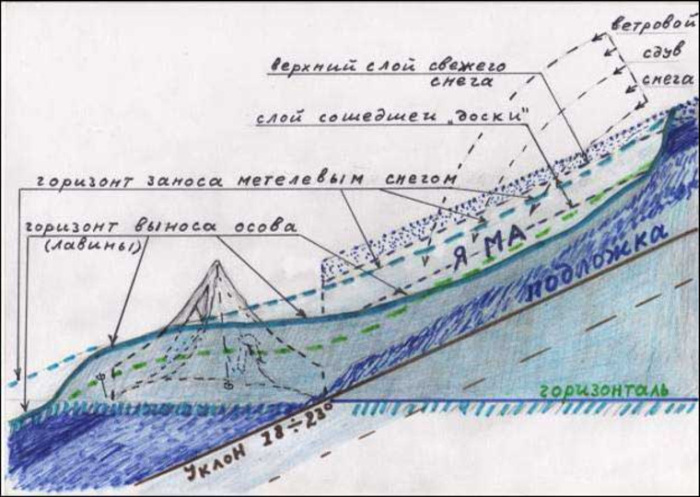 ветровой
сдув
снега
верхний слой свежего
снега
слой сошедшей „доски"
горизонт заноса метелевым снегом
горизонт выноса осова
(лавины)
ЯМА
подложка
горизонталь
Уклон 18÷23°